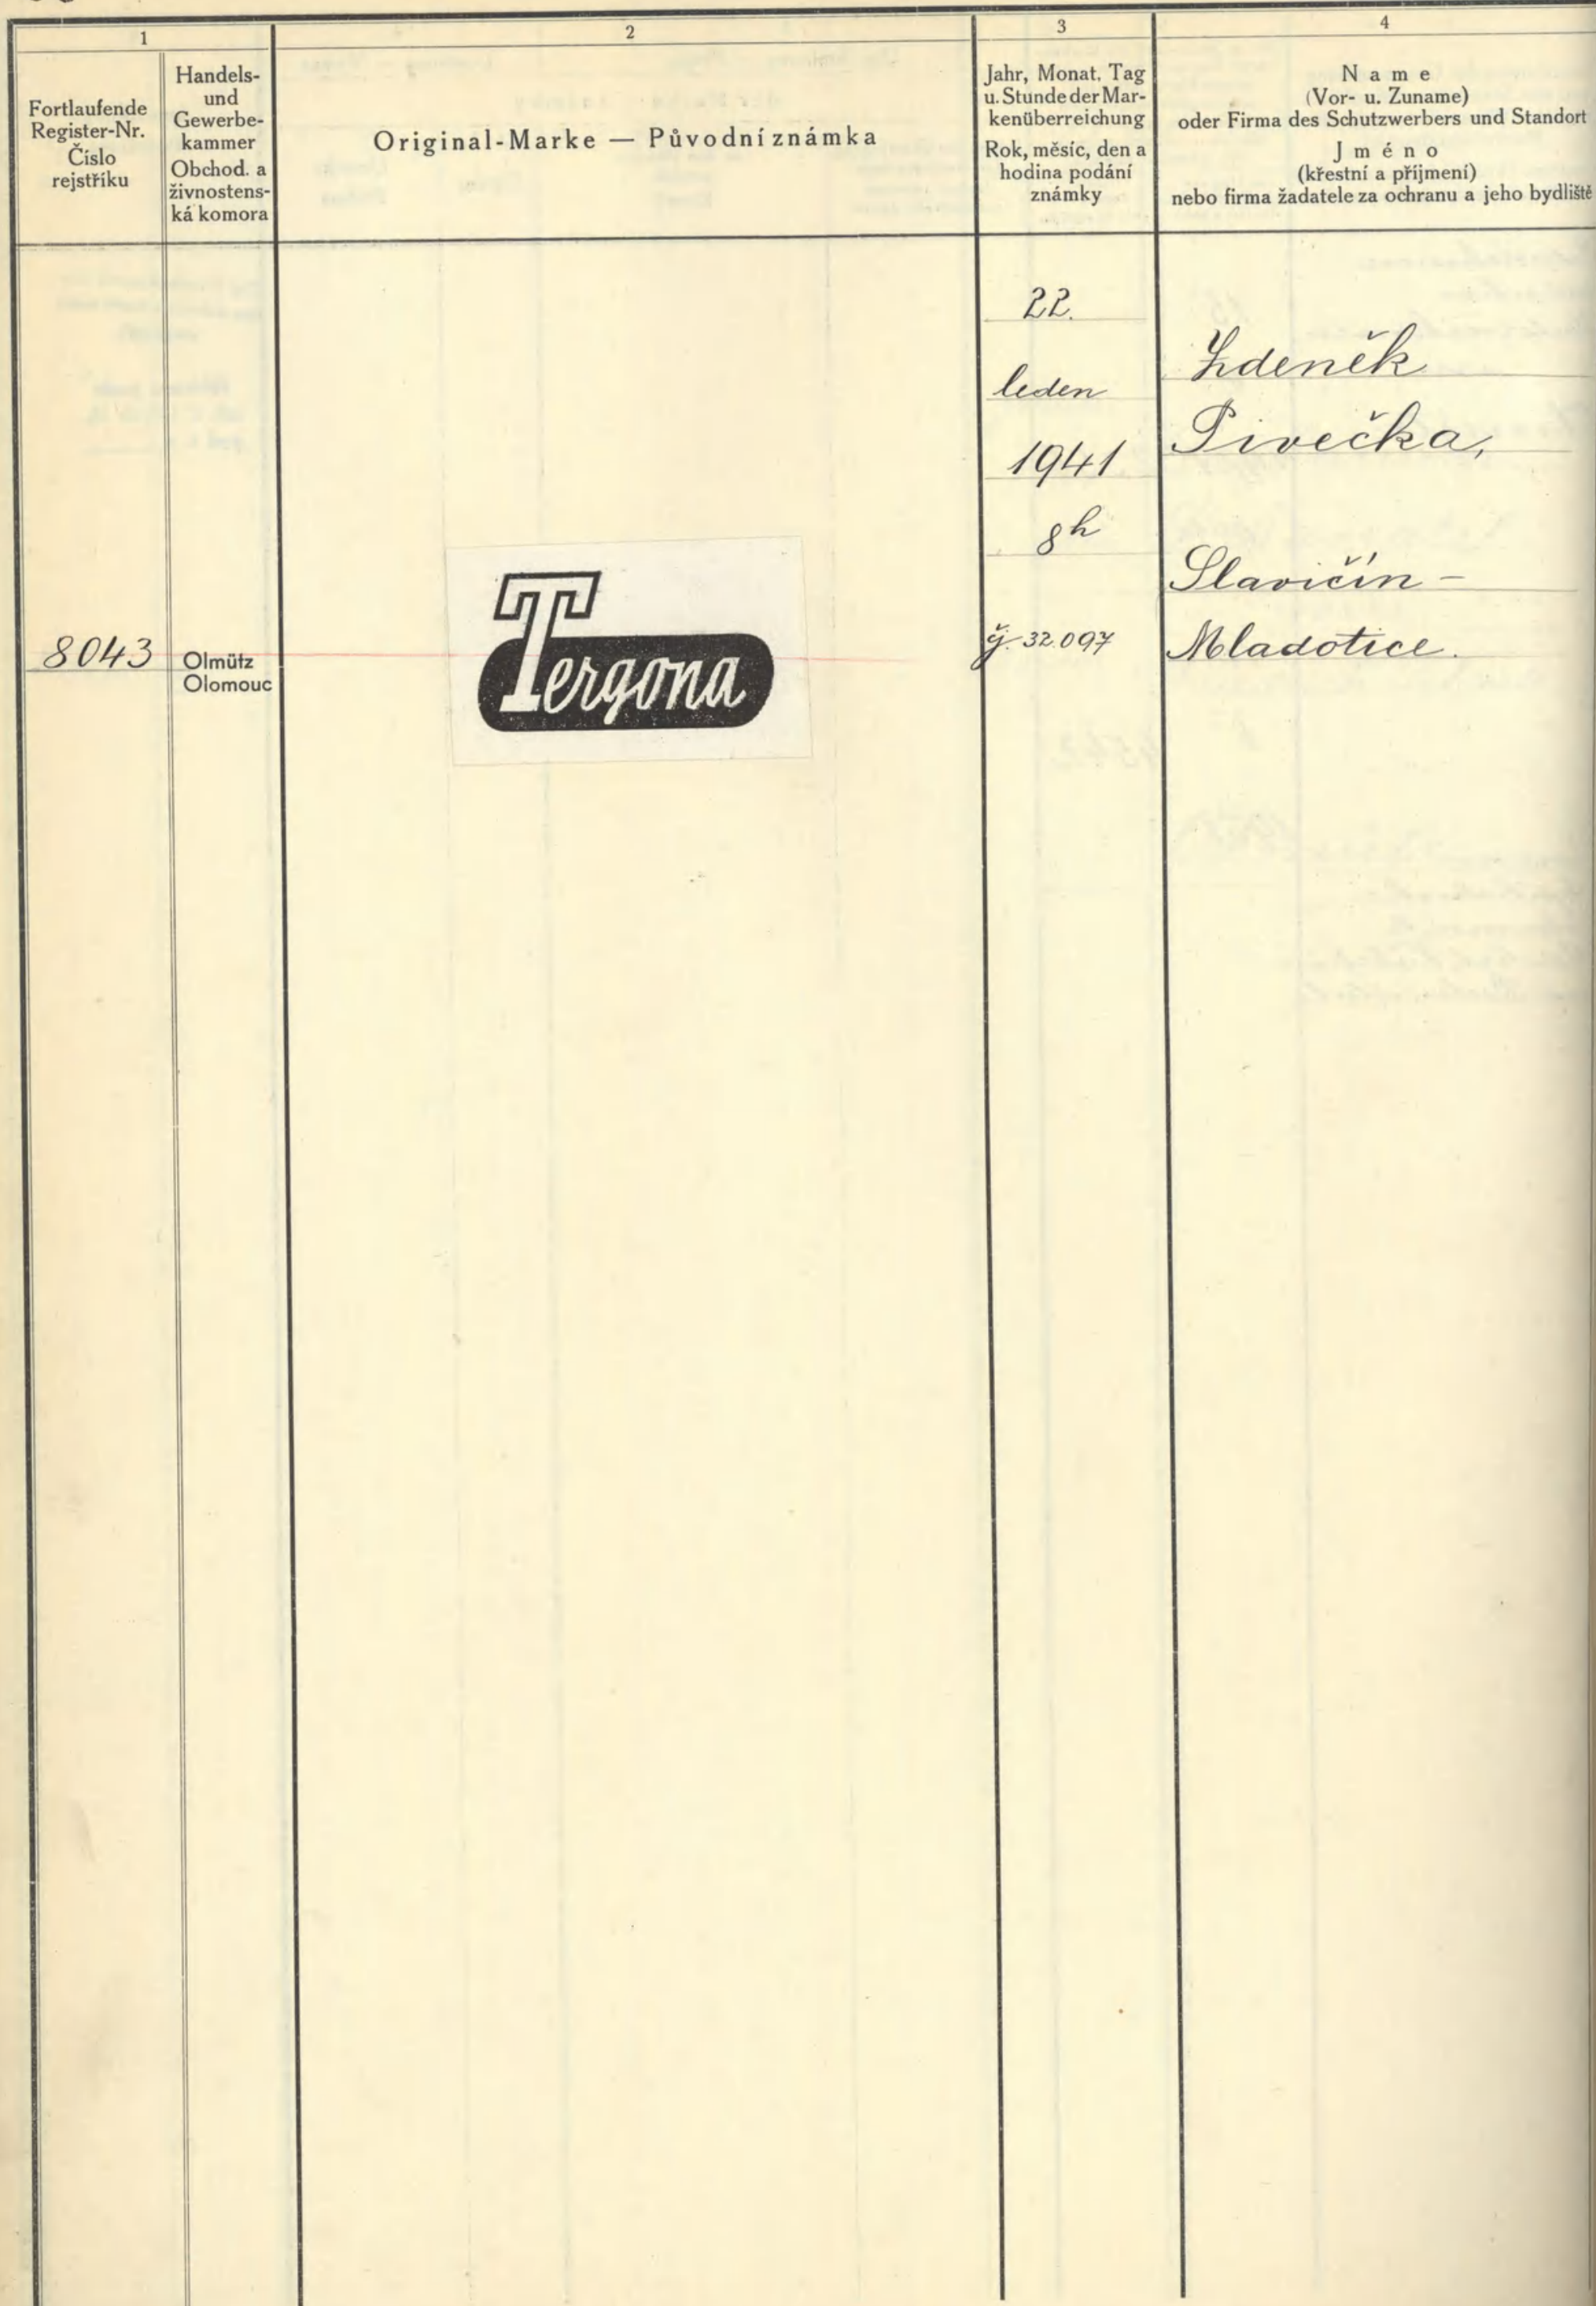 1
2
3
4
Fortlaufende
Register-Nr.
Číslo
rejstříku
Handels-
und
Gewerbe-
kammer
Obchod. a
živnostens-
ká komora
Original-Marke — Původní známka
Jahr, Monat, Tag
u. Stunde der Mar-
kenüberreichung
Rok, měsíc, den a
hodina podání
známky
Name
(Vor- u. Zuname)
oder Firma des Schutzwerbers und Standort
Jméno
(křestní a příjmení)
nebo firma žadatele za ochranu a jeho bydliště
8043
Olmütz
Olomouc
Tergona
22.
leden
1941
8h
32.097
Zdeněk
Pivečka,
Slavičín -
Mladotice.